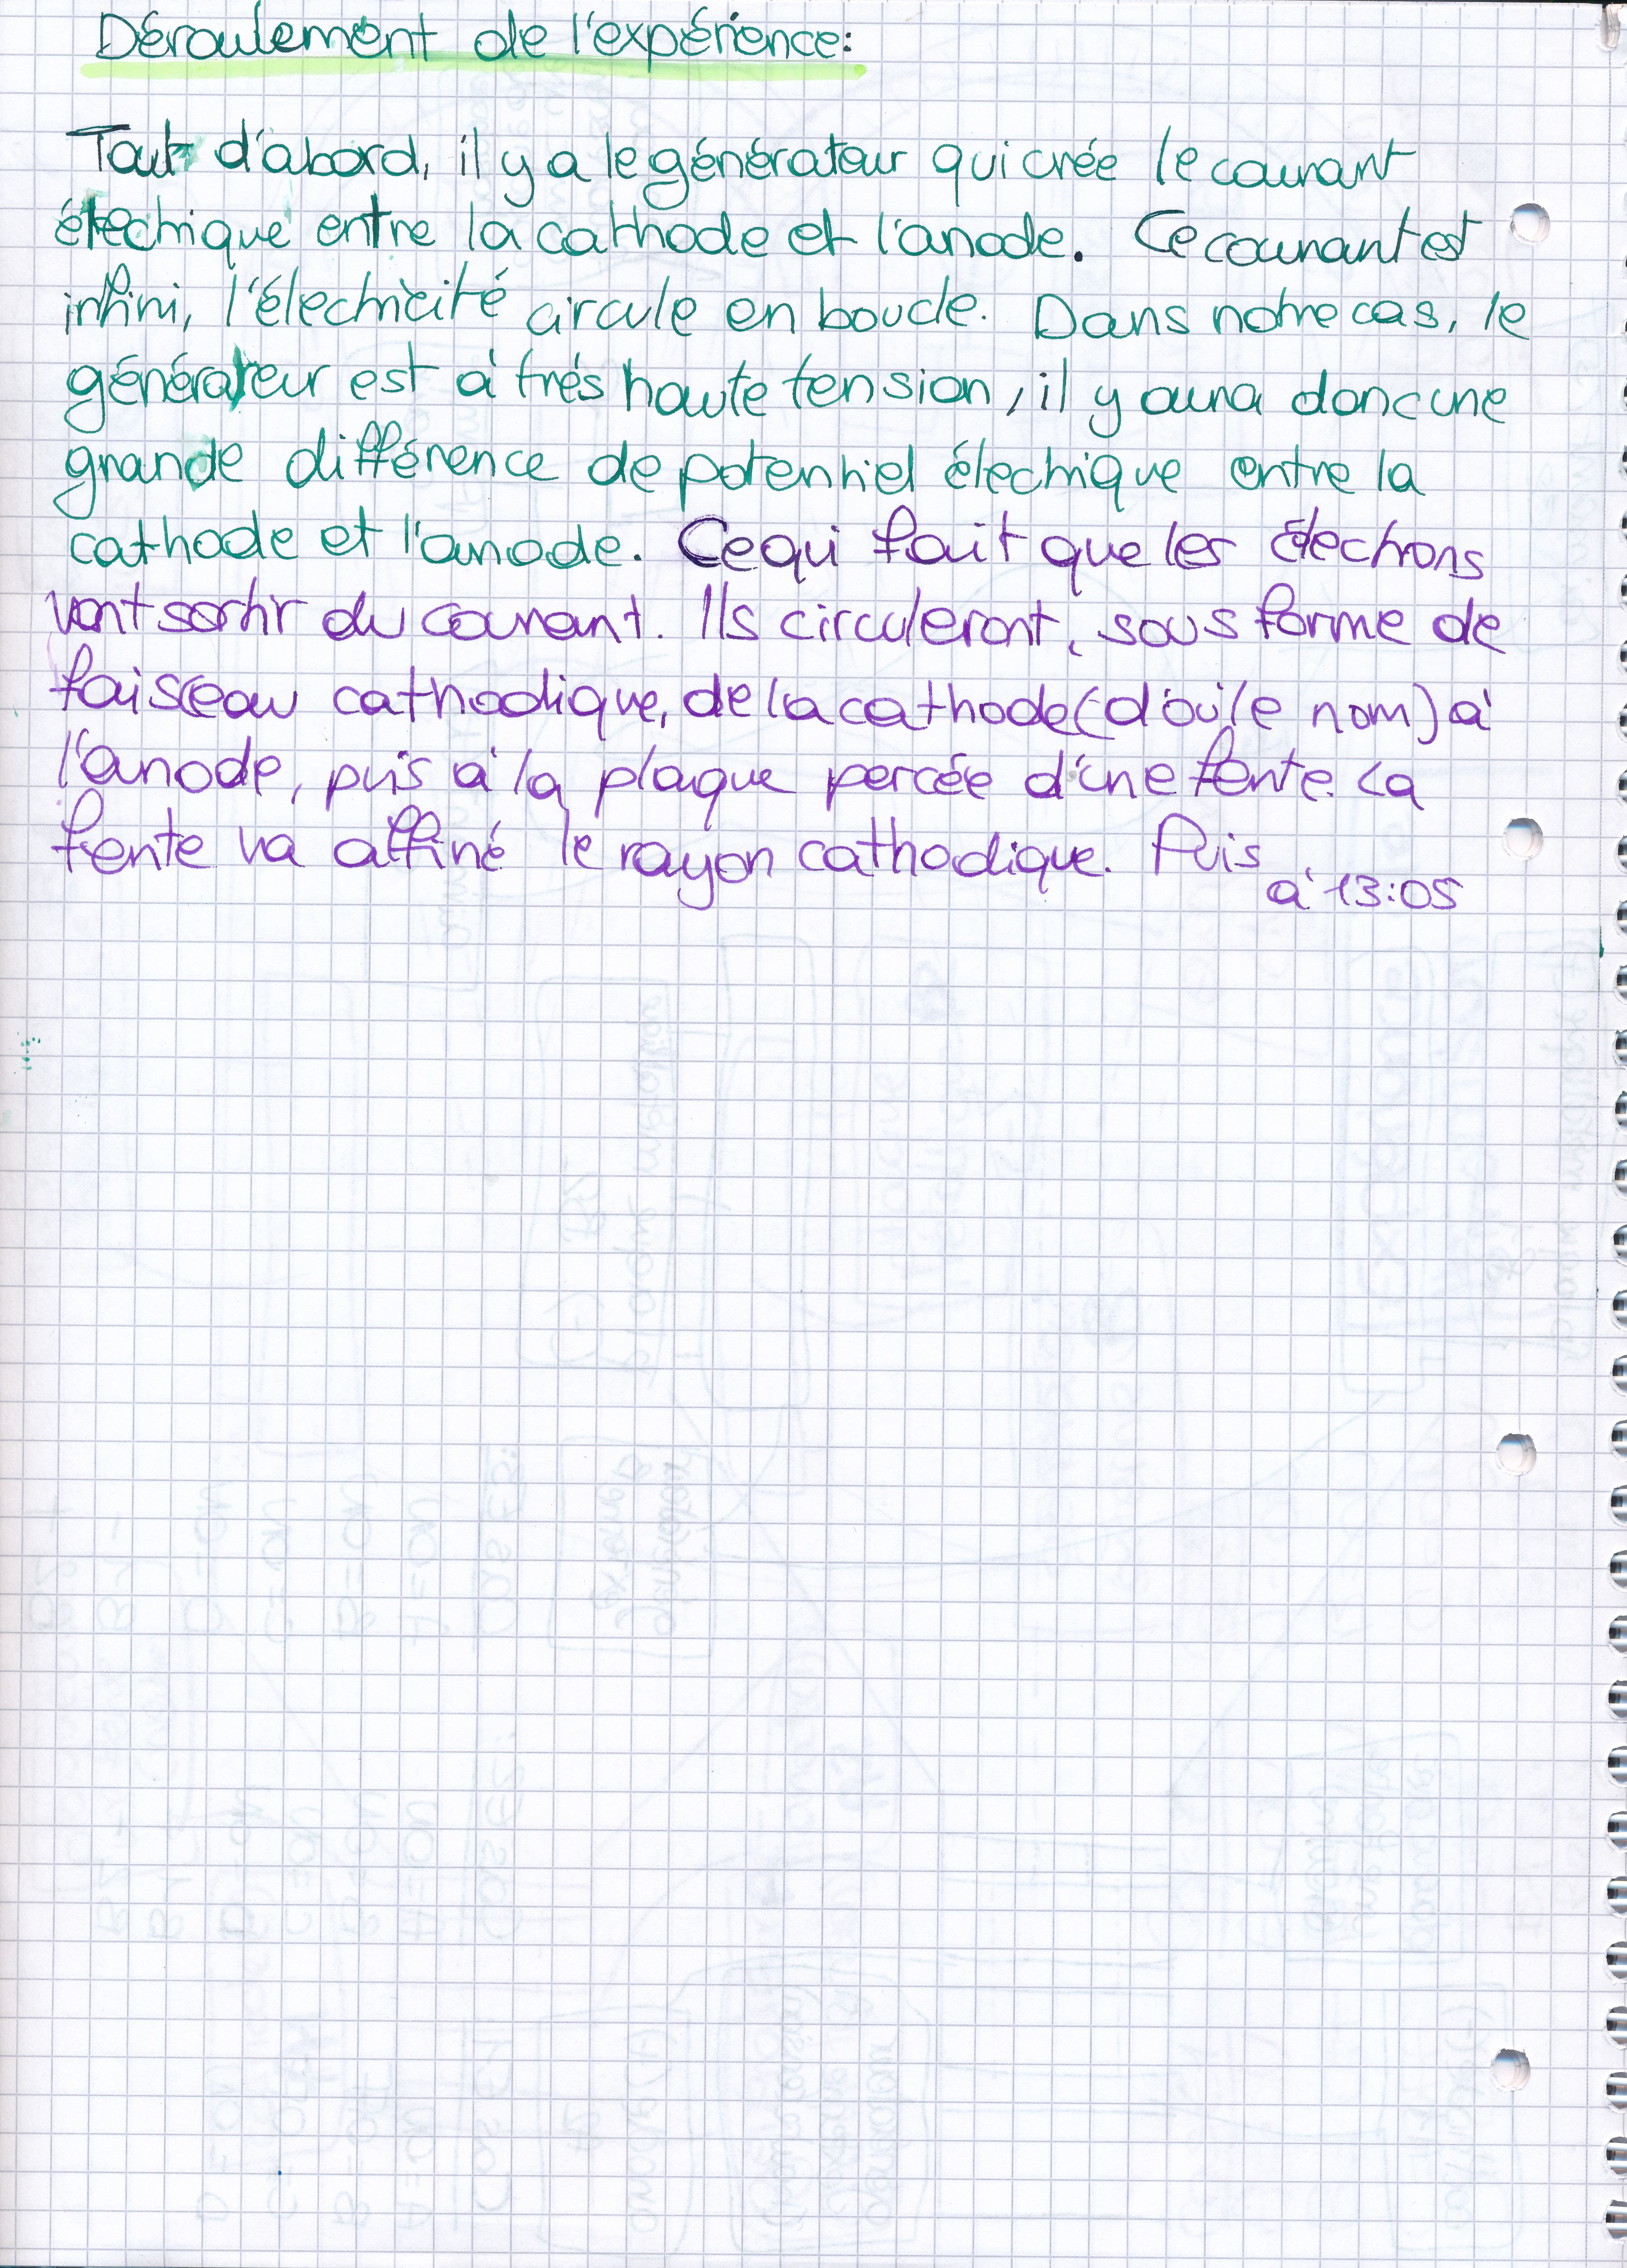 Déroulement de l'expérience:
Tout d'abord, il y a le générateur qui crée le courant
électrique entre la cathode et l'anode. Ce courant est
infini, l'électricité circule en boucle. Dans notre cas, le
générateur est à très haute tension, il y aura donc une
grande différence de potentiel électrique entre la
cathode et l'anode. Ce qui fait que les électrons
vont sortir du courant. Ils circuleront, sous forme de
faisceau cathodique, de la cathode (d'où le nom) à
l'anode, puis à la plaque percée d'une fente. La
fente va affiné le rayon cathodique. Puis
à 13:05